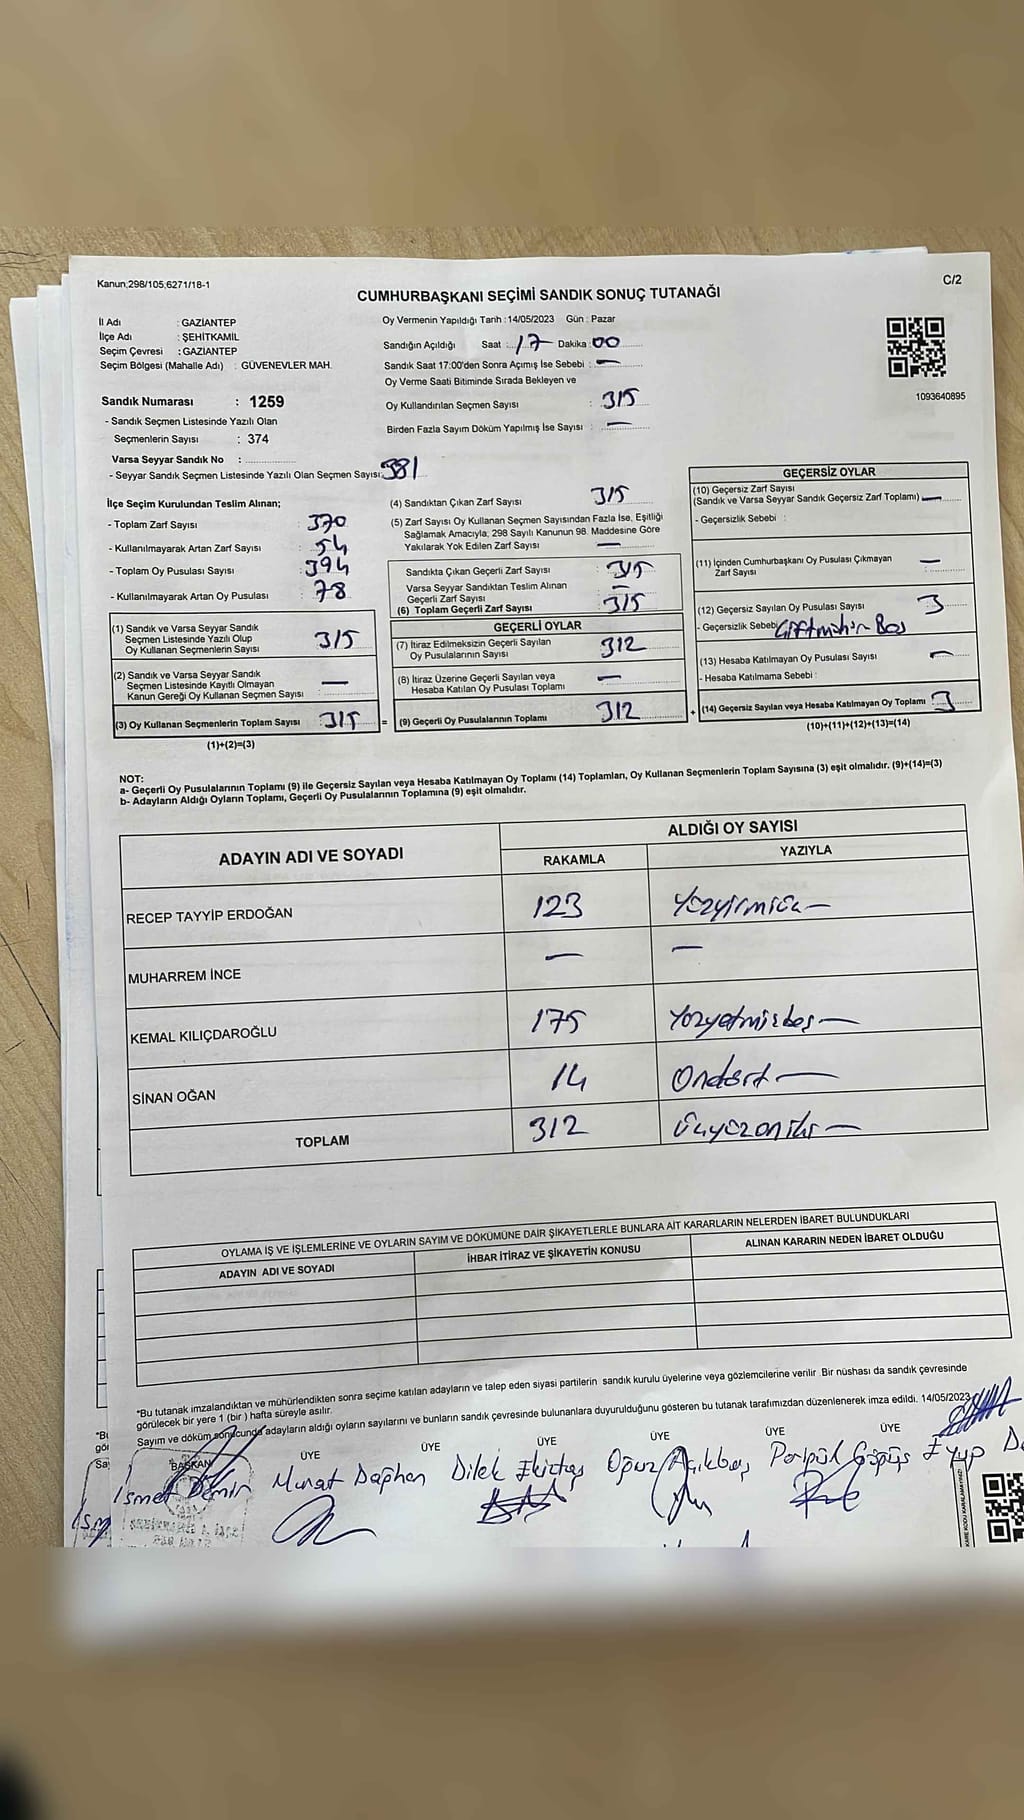 Kanun;298/105;6271/18-1
C/2
CUMHURBAŞKANI SEÇİMİ SANDIK SONUÇ TUTANAĞI
İl Adı : GAZİANTEP
İlçe Adı : ŞEHİTKAMİL
Seçim Çevresi : GAZİANTEP
Seçim Bölgesi (Mahalle Adı) : GÜVENEVLER MAH.
Sandık Numarası : 1259
- Sandık Seçmen Listesinde Yazılı Olan
Seçmenlerin Sayısı : 374
Varsa Seyyar Sandık No :
- Seyyar Sandık Seçmen Listesinde Yazılı Olan Seçmen Sayısı: 381
Oy Vermenin Yapıldığı Tarih : 14/05/2023 Gün : Pazar
Sandığın Açıldığı Saat : 17 Dakika : 00
Sandık Saat 17:00'den Sonra Açımış İse Sebebi : —
Oy Verme Saati Bitiminde Sırada Bekleyen ve
Oy Kullandırılan Seçmen Sayısı : 315
Birden Fazla Sayım Döküm Yapılmış İse Sayısı : —
1093640895
İlçe Seçim Kurulundan Teslim Alınan;
- Toplam Zarf Sayısı : 370
- Kullanılmayarak Artan Zarf Sayısı : 54
- Toplam Oy Pusulası Sayısı : 394
- Kullanılmayarak Artan Oy Pusulası : 78
(1) Sandık ve Varsa Seyyar Sandık
Seçmen Listesinde Yazılı Olup
Oy Kullanan Seçmenlerin Sayısı : 315
(2) Sandık ve Varsa Seyyar Sandık
Seçmen Listesinde Kayıtlı Olmayan
Kanun Gereği Oy Kullanan Seçmen Sayısı : —
(3) Oy Kullanan Seçmenlerin Toplam Sayısı : 315 =
(1)+(2)=(3)
(4) Sandıktan Çıkan Zarf Sayısı : 315
(5) Zarf Sayısı Oy Kullanan Seçmen Sayısından Fazla İse, Eşitliği
Sağlamak Amacıyla; 298 Sayılı Kanunun 98. Maddesine Göre
Yakılarak Yok Edilen Zarf Sayısı : —
Sandıkta Çıkan Geçerli Zarf Sayısı : 315
Varsa Seyyar Sandıktan Teslim Alınan
Geçerli Zarf Sayısı : —
(6) Toplam Geçerli Zarf Sayısı : 315
GEÇERLİ OYLAR
(7) İtiraz Edilmeksizin Geçerli Sayılan
Oy Pusulalarının Sayısı : 312
(8) İtiraz Üzerine Geçerli Sayılan veya
Hesaba Katılan Oy Pusulası Toplamı : —
(9) Geçerli Oy Pusulalarının Toplamı : 312 +
GEÇERSİZ OYLAR
(10) Geçersiz Zarf Sayısı
(Sandık ve Varsa Seyyar Sandık Geçersiz Zarf Toplamı) : —
- Geçersizlik Sebebi :
(11) İçinden Cumhurbaşkanı Oy Pusulası Çıkmayan
Zarf Sayısı : —
(12) Geçersiz Sayılan Oy Pusulası Sayısı : 3
- Geçersizlik Sebebi Çift mühür Boş
(13) Hesaba Katılmayan Oy Pusulası Sayısı : —
- Hesaba Katılmama Sebebi :
(14) Geçersiz Sayılan veya Hesaba Katılmayan Oy Toplamı : 3
(10)+(11)+(12)+(13)=(14)
NOT:
a- Geçerli Oy Pusulalarının Toplamı (9) ile Geçersiz Sayılan veya Hesaba Katılmayan Oy Toplamı (14) Toplamları, Oy Kullanan Seçmenlerin Toplam Sayısına (3) eşit olmalıdır. (9)+(14)=(3)
b- Adayların Aldığı Oyların Toplamı, Geçerli Oy Pusulalarının Toplamına (9) eşit olmalıdır.
ADAYIN ADI VE SOYADI
ALDIĞI OY SAYISI
RAKAMLA YAZIYLA
RECEP TAYYİP ERDOĞAN 123 Yüzyirmiüç —
MUHARREM İNCE — —
KEMAL KILIÇDAROĞLU 175 Yüzyetmişbeş —
SİNAN OĞAN 14 Ondört —
TOPLAM 312 Üçyüzoniki —
OYLAMA İŞ VE İŞLEMLERİNE VE OYLARIN SAYIM VE DÖKÜMÜNE DAİR ŞİKAYETLERLE BUNLARA AİT KARARLARIN NELERDEN İBARET BULUNDUKLARI
ADAYIN ADI VE SOYADI İHBAR İTİRAZ VE ŞİKAYETİN KONUSU ALINAN KARARIN NEDEN İBARET OLDUĞU
*Bu tutanak imzalandıktan ve mühürlendikten sonra seçime katılan adayların ve talep eden siyasi partilerin sandık kurulu üyelerine veya gözlemcilerine verilir. Bir nüshası da sandık çevresinde
görülecek bir yere 1 (bir) hafta süreyle asılır.
Sayım ve döküm sonucunda adayların aldığı oyların sayılarını ve bunların sandık çevresinde bulunanlara duyurulduğunu gösteren bu tutanak tarafımızdan düzenlenerek imza edildi. 14/05/2023
BAŞKAN ÜYE ÜYE ÜYE ÜYE ÜYE ÜYE
İsmet Demir Murat Dağhan Dilek Ekiztaş Oğuz Açıkbaş Gögüş Eyup